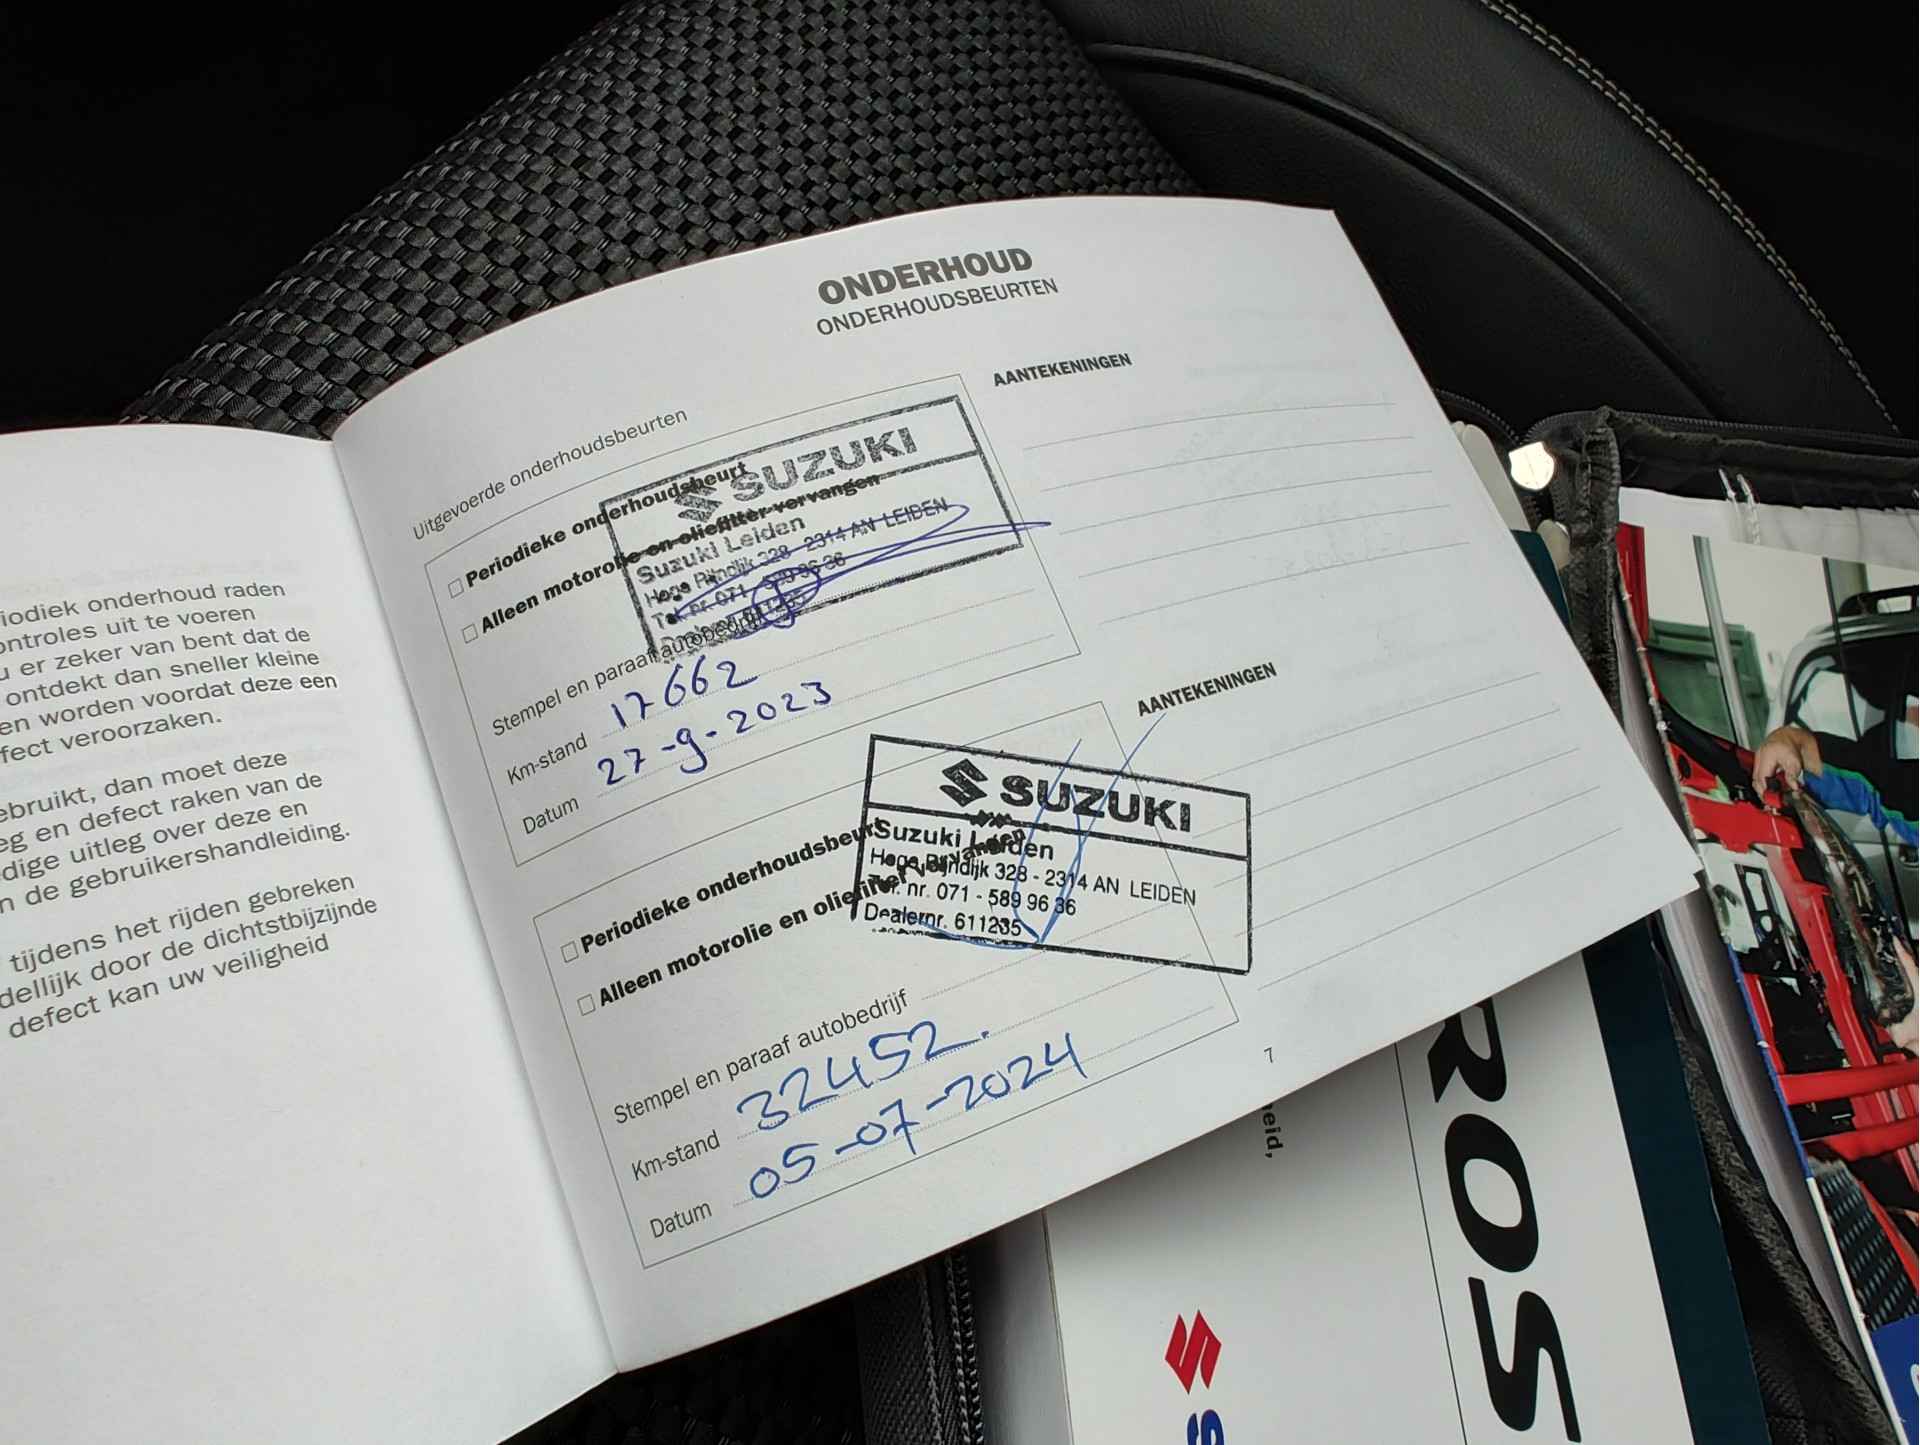 iodiek onderhoud raden
ontroles uit te voeren
u er zeker van bent dat de
ontdekt dan sneller kleine
en worden voordat deze een
fect veroorzaken.
ebruikt, dan moet deze
eg en defect raken van de
dige uitleg over deze en
n de gebruikershandleiding.
tijdens het rijden gebreken
dellijk door de dichtstbijzijnde
defect kan uw veiligheid
ONDERHOUD
ONDERHOUDSBEURTEN
Uitgevoerde onderhoudsbeurten
AANTEKENINGEN
SUZUKI
Suzuki Leiden
Hoge Rijndijk 328 - 2314 AN LEIDEN
Tel. nr. 071 - 589 96 36
Dealernr. 611235
Periodieke onderhoudsbeurt
Alleen motorolie en oliefilter vervangen
Stempel en paraaf autobedrijf
Km-stand 17662
Datum 27-9-2023
AANTEKENINGEN
SUZUKI
Suzuki Leiden
Hoge Rijndijk 328 - 2314 AN LEIDEN
Tel. nr. 071 - 589 96 36
Dealernr. 611235
Periodieke onderhoudsbeurt
Alleen motorolie en oliefilter vervangen
Stempel en paraaf autobedrijf
Km-stand 32452.
Datum 05-07-2024
7
heid,
ROS
S